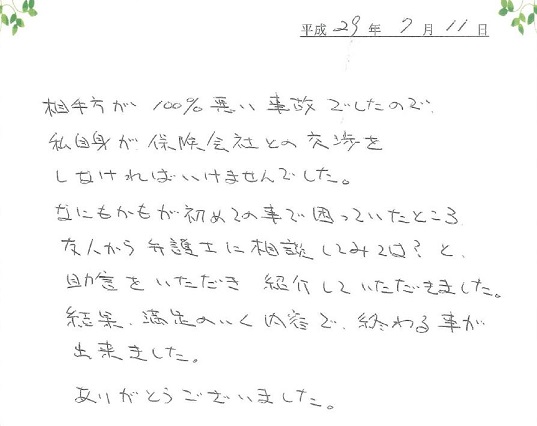 平成 29 年 7 月 11 日
相手方が 100% 悪い事故でしたので、
私自身が保険会社との交渉を
しなければいけませんでした。
なにもかもが初めての事で困っていたところ
友人から弁護士に相談してみては?と、
助言をいただき 紹介していただきました。
結果、満足のいく内容で、終わる事が
出来ました。
ありがとうございました。